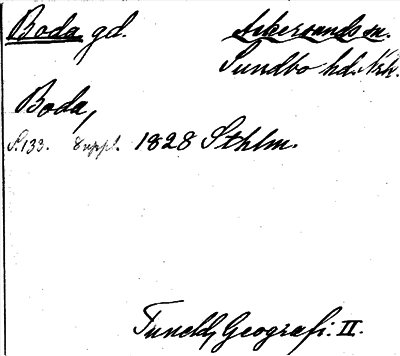 Boda gd. Askersunds sn.
Sundbo hd. Nrk.
Boda,
S. 133. Suppl. 1828 Sthlm.
Tuneld, Geografi. II.